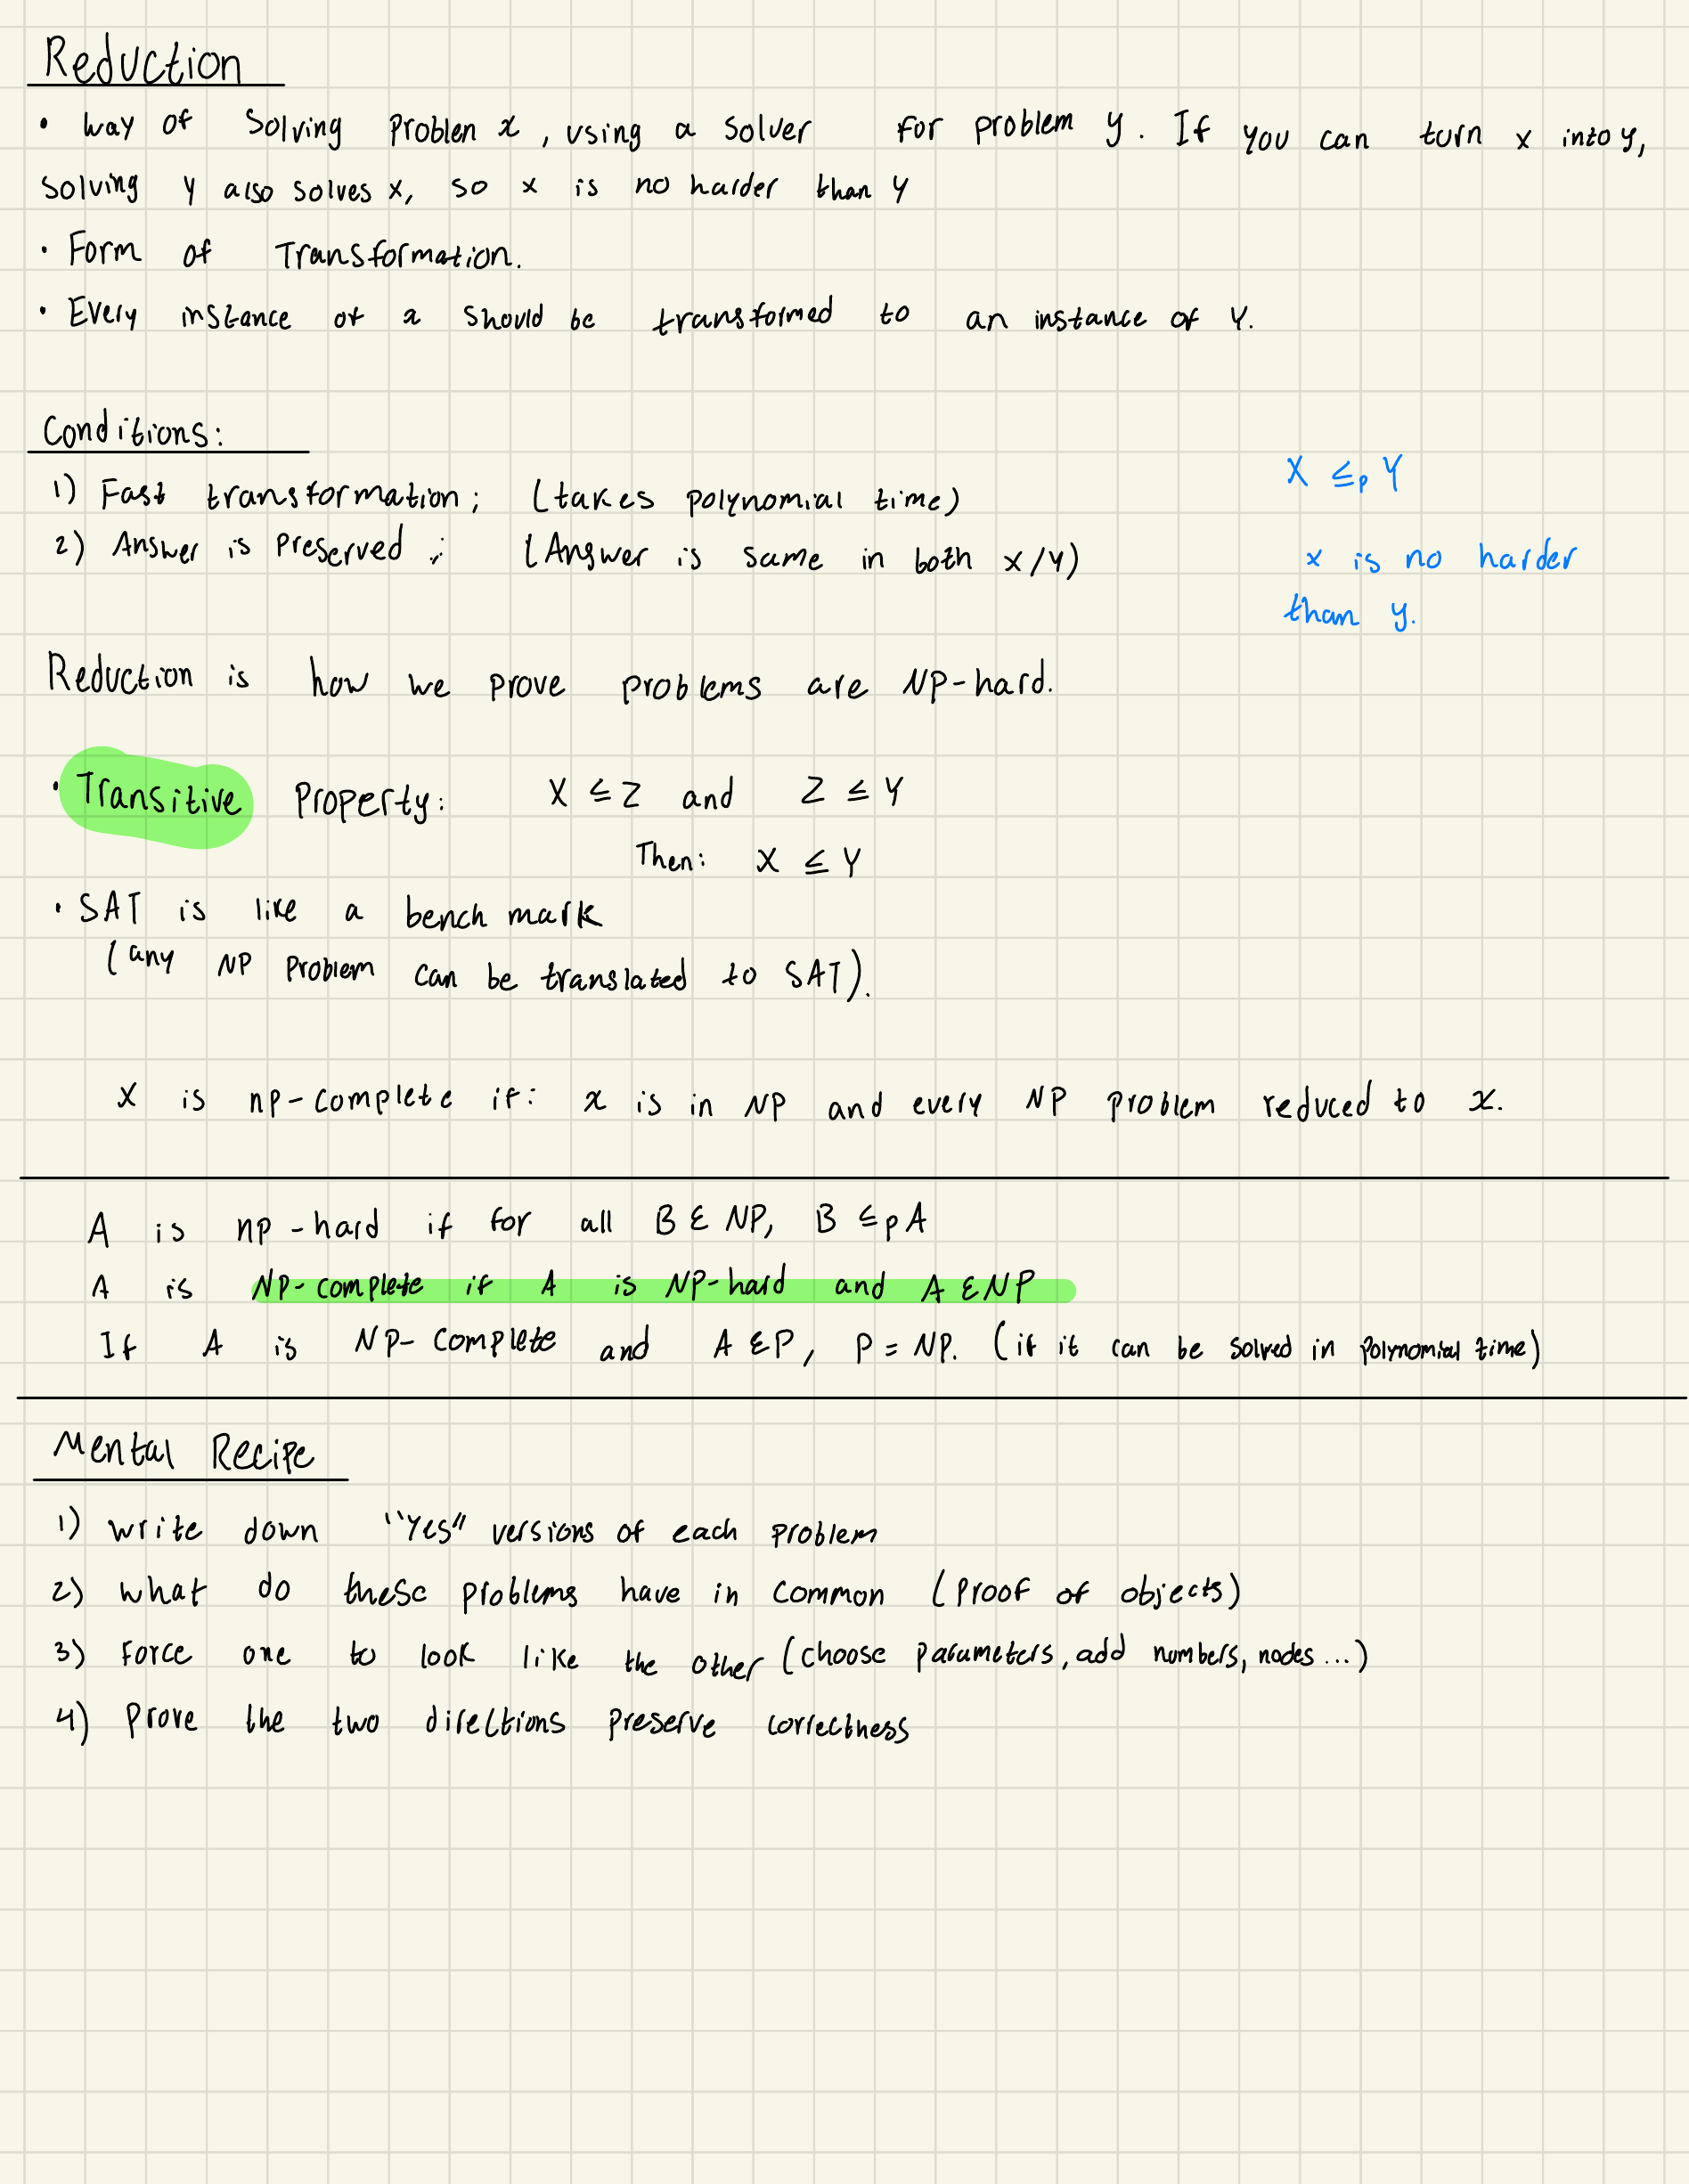 Reduction
• way of solving problem x, using a solver for problem y. If you can turn x into y,
solving y also solves x, so x is no harder than y
• Form of Transformation.
• Every instance of x should be transformed to an instance of Y.
Conditions:
1) Fast transformation; (takes polynomial time)
2) Answer is preserved ; (Answer is same in both x/y)
X ≤p Y
x is no harder
than y.
Reduction is how we prove problems are NP-hard.
• Transitive Property: X ≤ Z and Z ≤ Y
Then: X ≤ Y
• SAT is like a bench mark
(any NP Problem can be translated to SAT).
X is np-complete if: x is in NP and every NP problem reduced to x.
A is np-hard if for all B ∈ NP, B ≤p A
A is NP-complete if A is NP-hard and A ∈ NP
If A is NP-complete and A ∈ P, P = NP. (if it can be solved in polynomial time)
Mental Recipe
1) write down "Yes" versions of each problem
2) what do these problems have in common (proof of objects)
3) Force one to look like the other (choose parameters, add numbers, nodes...)
4) Prove the two directions preserve correctness